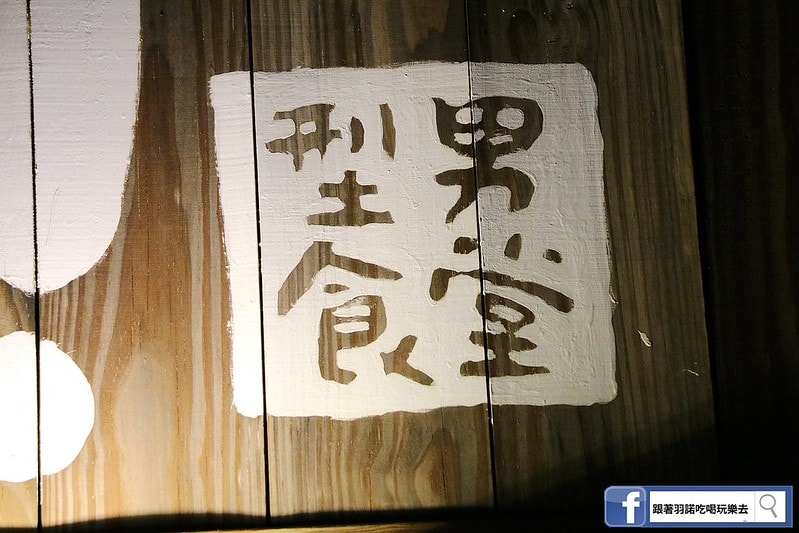 型男
食堂
f 跟著羽諾吃喝玩樂去